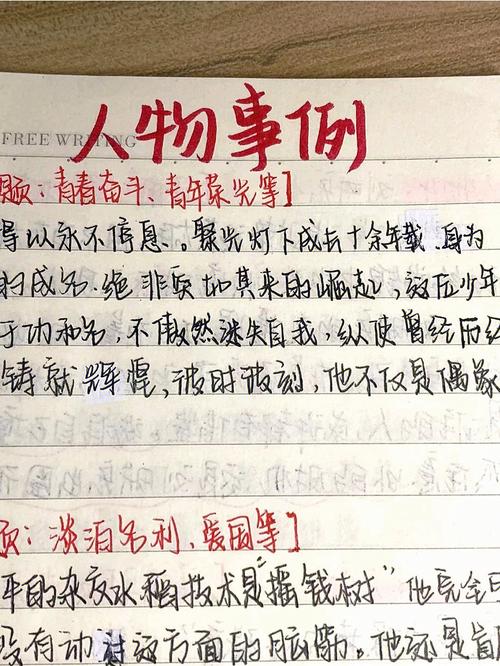 人物事例
FREE WRITING
题：青春奋斗、青年荣光等]
得以永不停息。聚光灯下成长十余年载，身为
扫成名，绝非突如其来的崛起，这位少年
于功和名，不傲然迷失自我，纵使曾经历经
铸就辉煌，彼时彼刻，他不仅是偶像
页：淡泊名利、爱国等]
平的杂交水稻技术是"摇钱树"他完全可
没有动过这方面的脑筋。他还是首